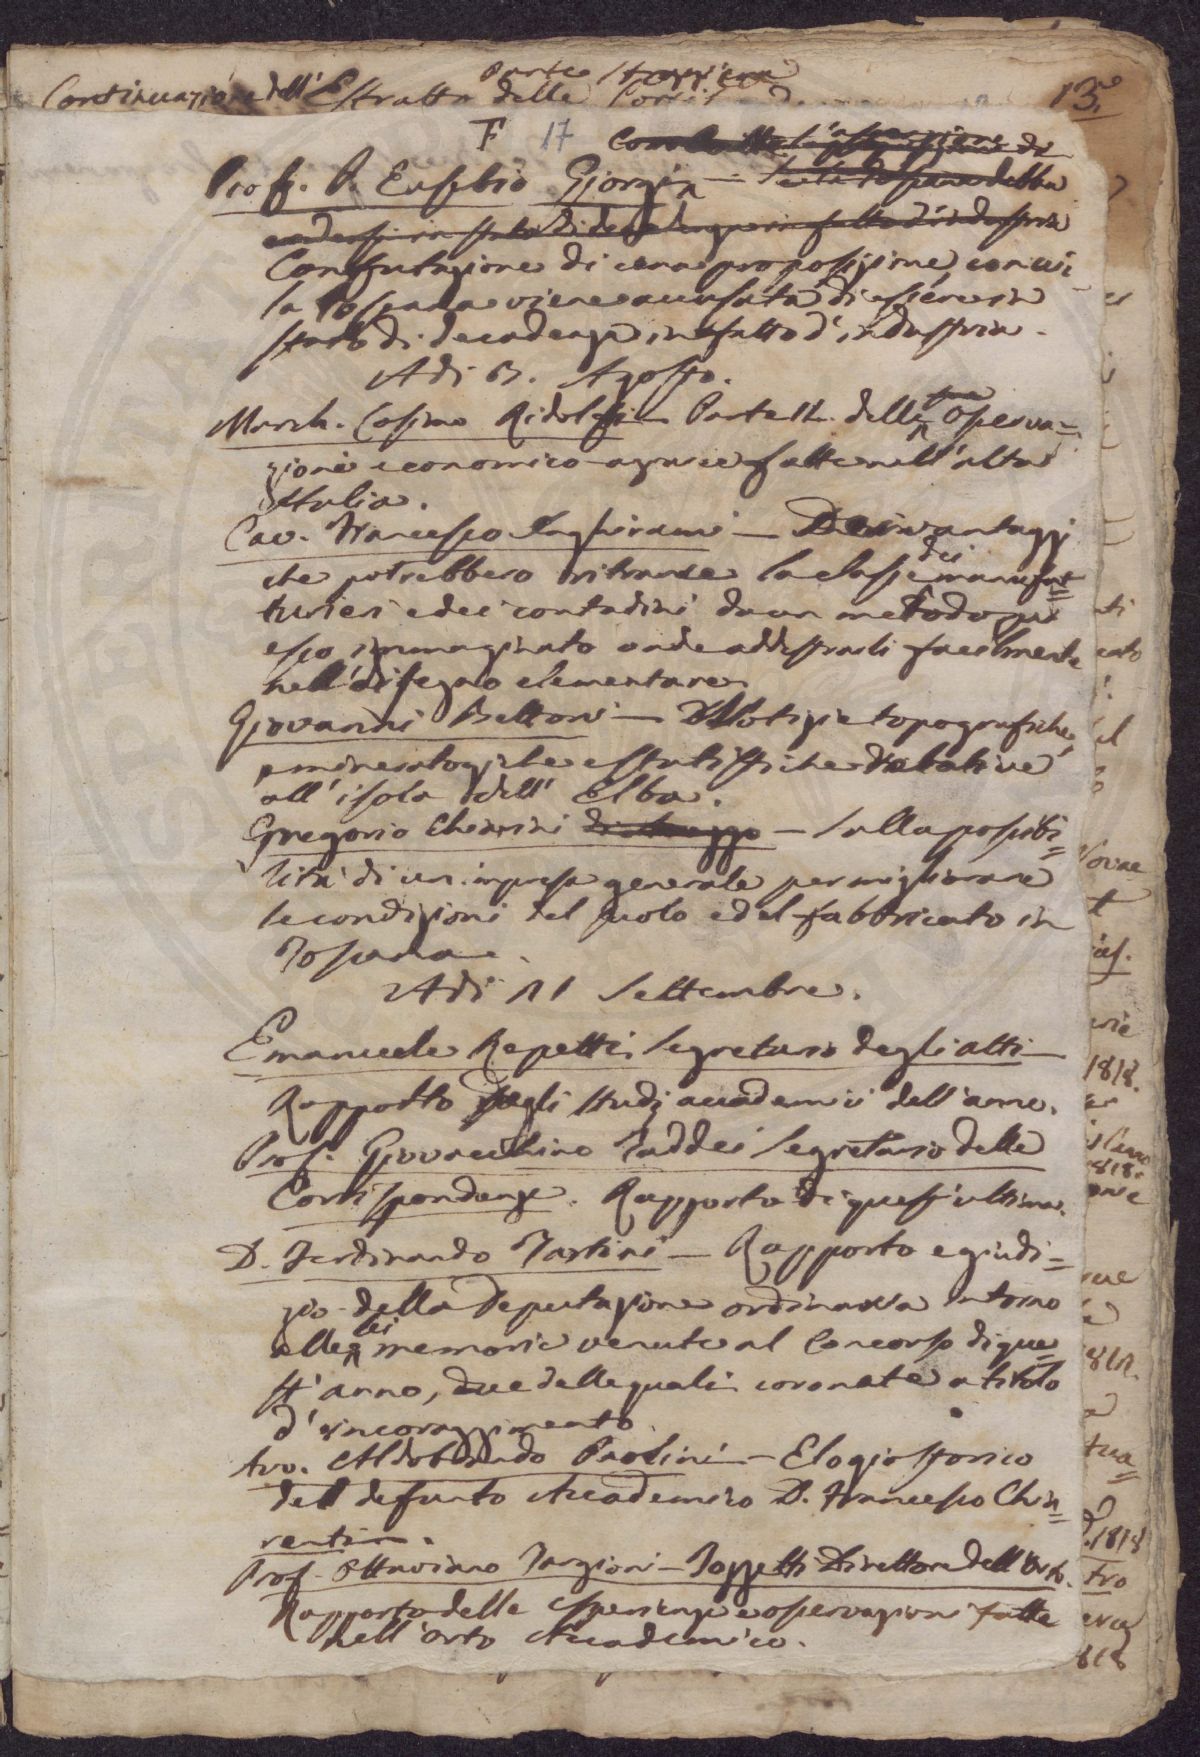 Parte Storica
Continuazione dell'Estratto delle Corris
13.
F 17
Prof. P. Eusebio Giorgi —
Confutazione di una proposizione, con cui
la Toscana viene accusata di essere in
stato di decadenza in fatto d'industria.
Adi 13. Agosto.
March. Cosimo Ridolfi — Parte II. delle sue Osserva=
zioni economico-agrarie fatte nell'alta
Italia.
Cav. Francesco Inghirami — Dei vantaggi
che potrebbero ritrarre la classe dei manufat=
turieri e dei contadini da un metodo da
esso immaginato onde addestrarli facilmente
nell'disegno elementare.
Giovanni Bettoni — Notizie topografiche,
mineralogiche e statistiche relative
all'isola dell'Elba.
Gregorio Chiarini — Sulla possibi=
lità di un impresa generale per migliorare
le condizioni del suolo e del fabbricato in
Toscana.
Adi 11 Settembre.
Emanuele Repetti Segretario degli atti —
Rapporto degli studj accademici dell'anno.
Prof. Giovacchino Taddei Segretario delle
Corrispondenze. Rapporto di quest'ultima.
D. Ferdinando Tartini — Rapporto e giudi=
zio della Deputazione ordinaria intorno
alle sei memorie venute al Concorso di que=
st'anno, due delle quali coronate a titolo
d'incoraggimento
Avv. Aldobrando Paolini — Elogio storico
del defunto Accademico D. Francesco Chia=
renti.
Prof. Ottaviano Targioni-Tozzetti Direttore dell'Orto.
Rapporto delle esperienze e osservazioni fatte
nell'orto Accademico.
1818.
1818